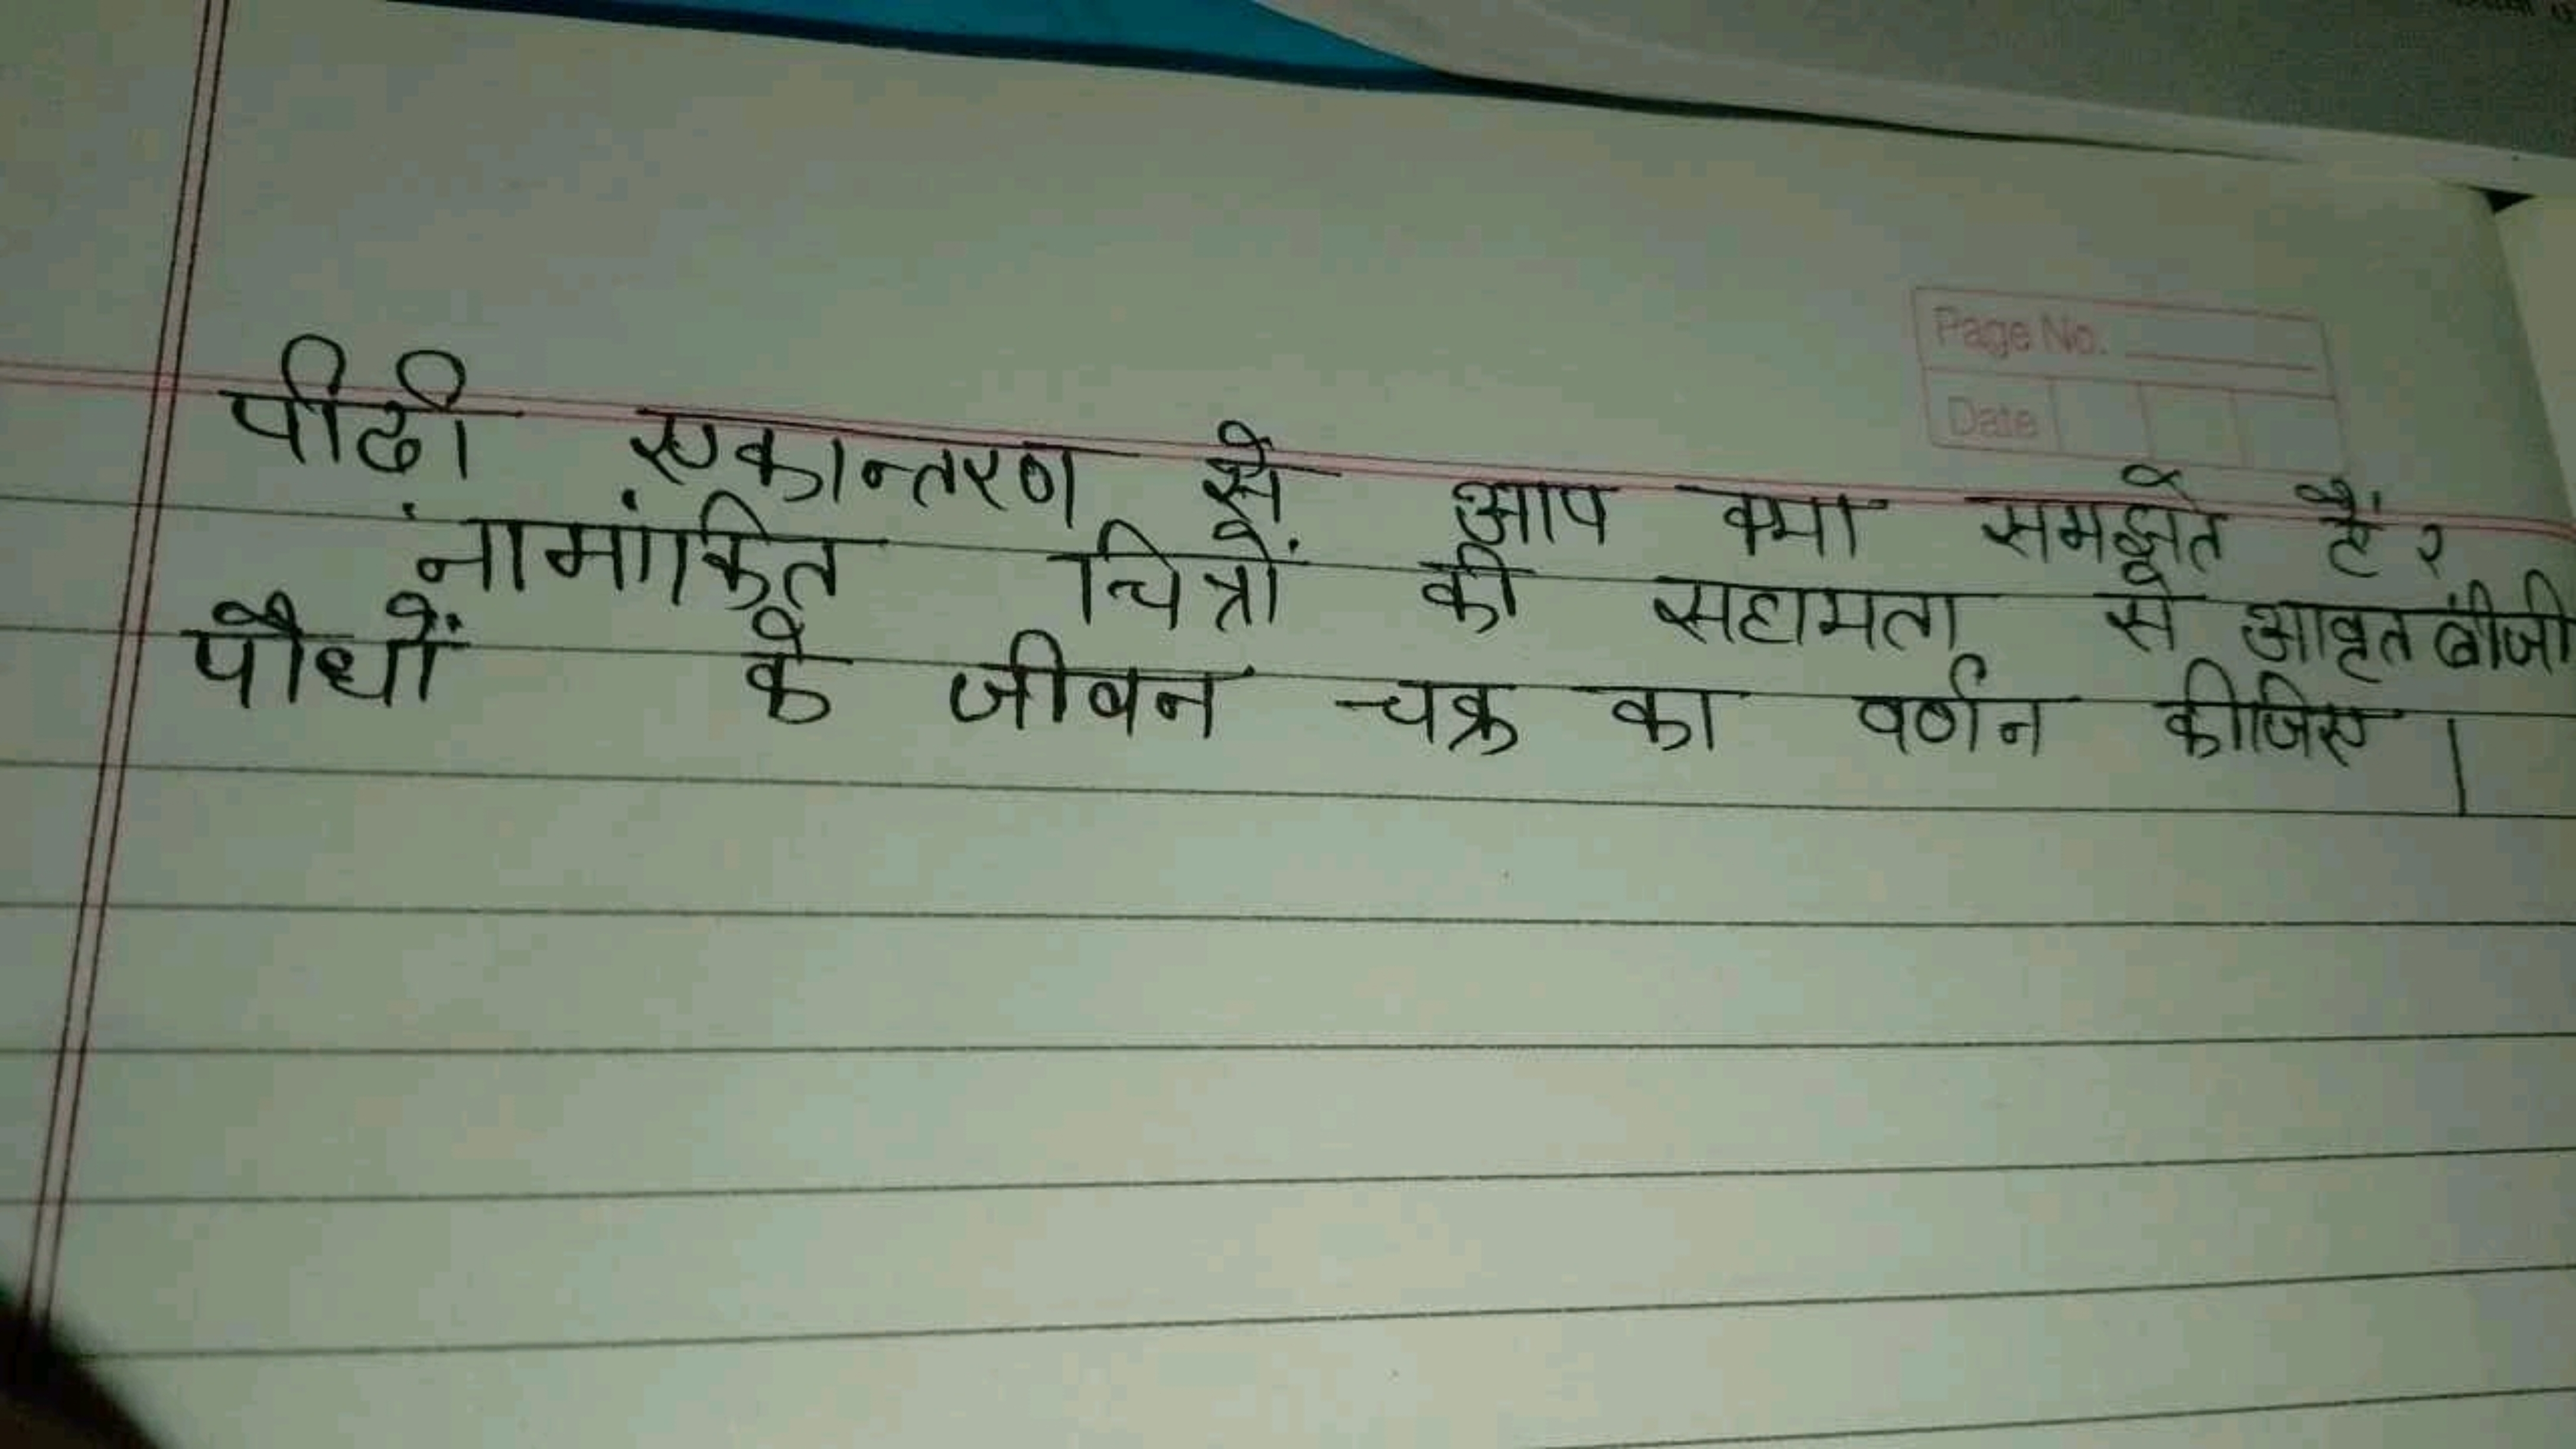 Page No.
Date
पीढी एकान्तरण से आप क्या समझते हैं?
नांमांकित चित्रों की सहायता से आवृतबीजी
पौधों के जीवन चक्र का वर्णन कीजिए।